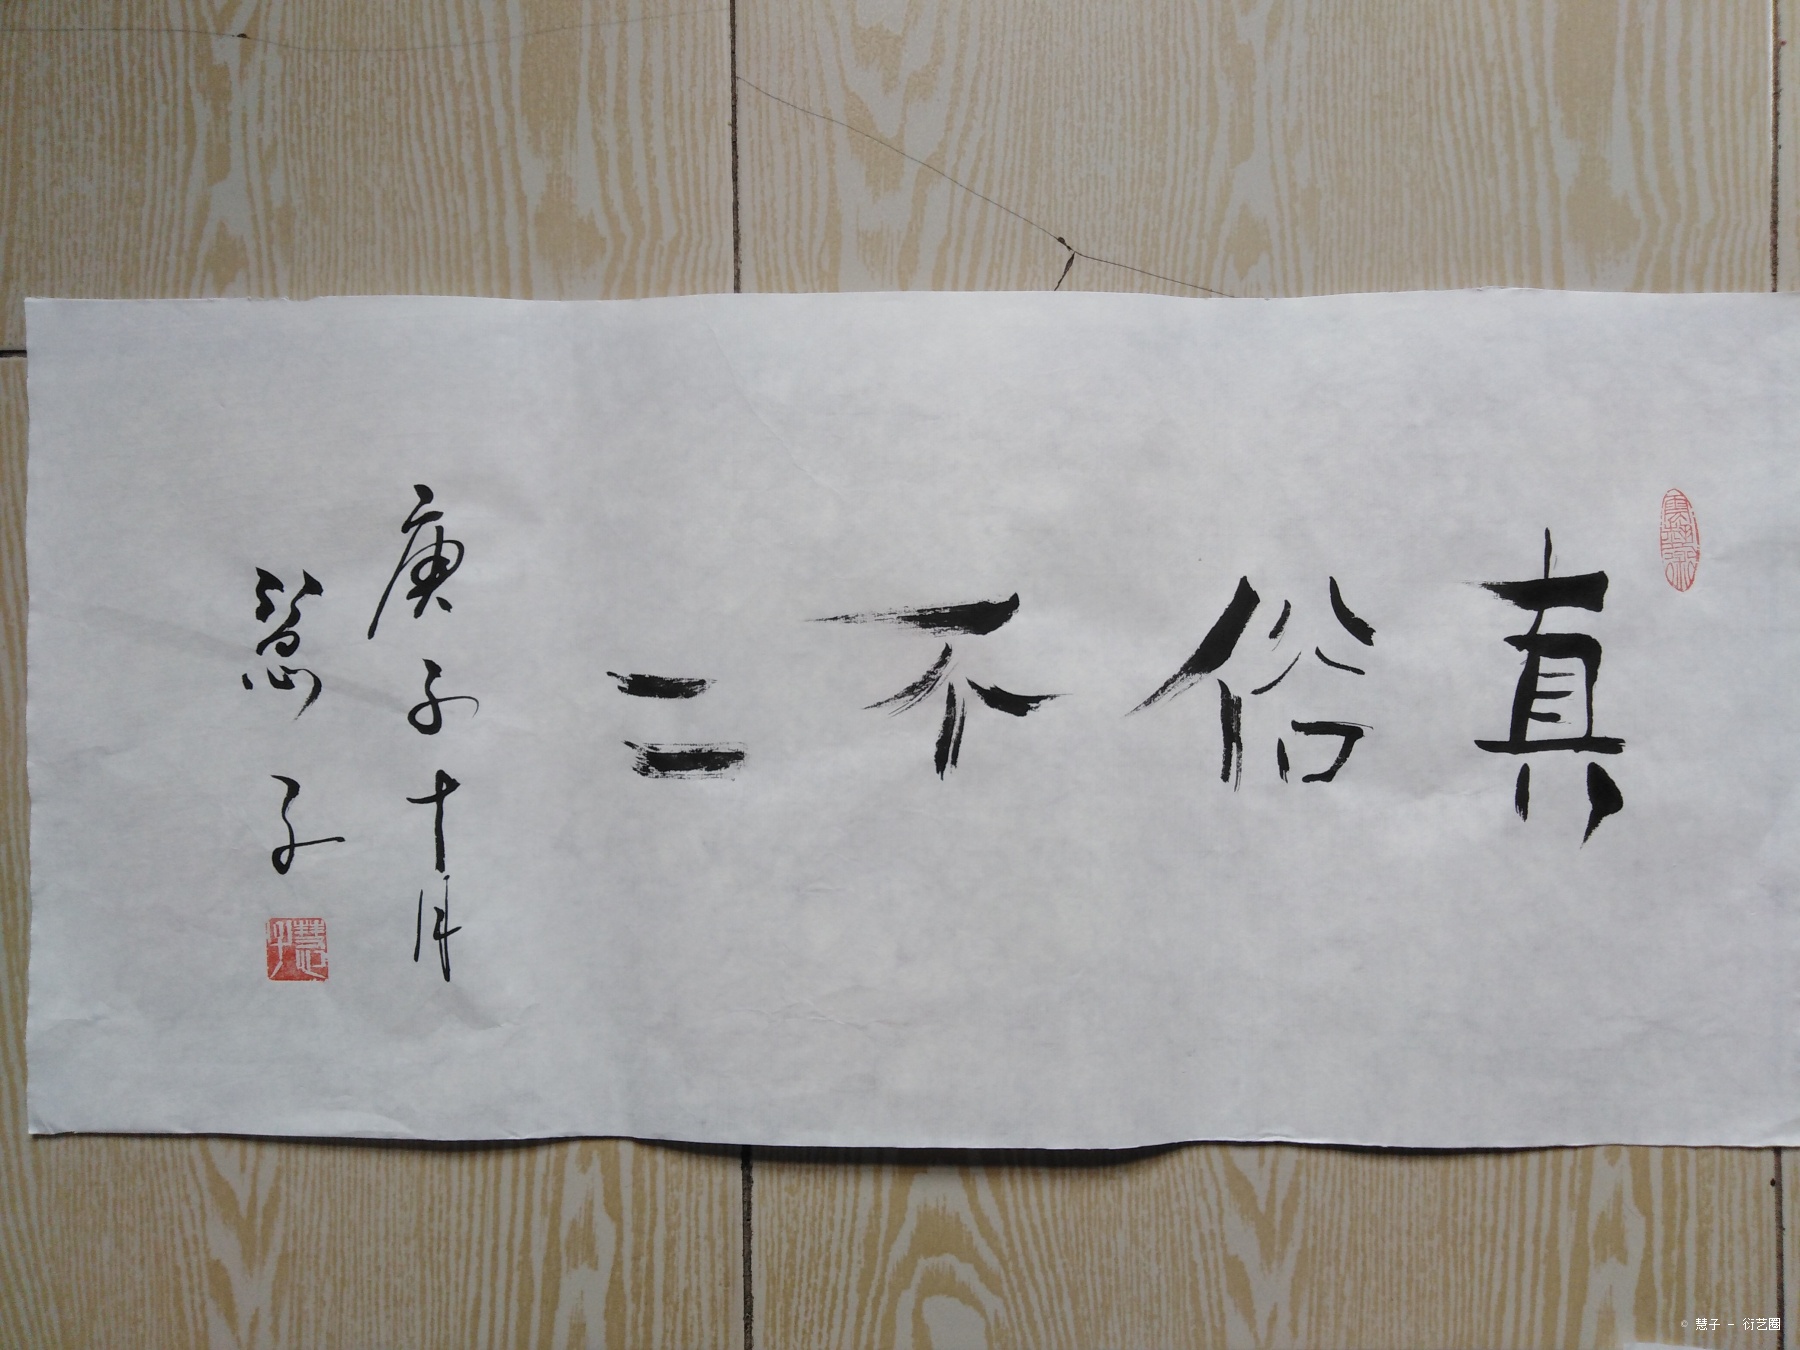 真俗不二
庚子十月
慧子
慧子
© 慧子 - 衍艺圈